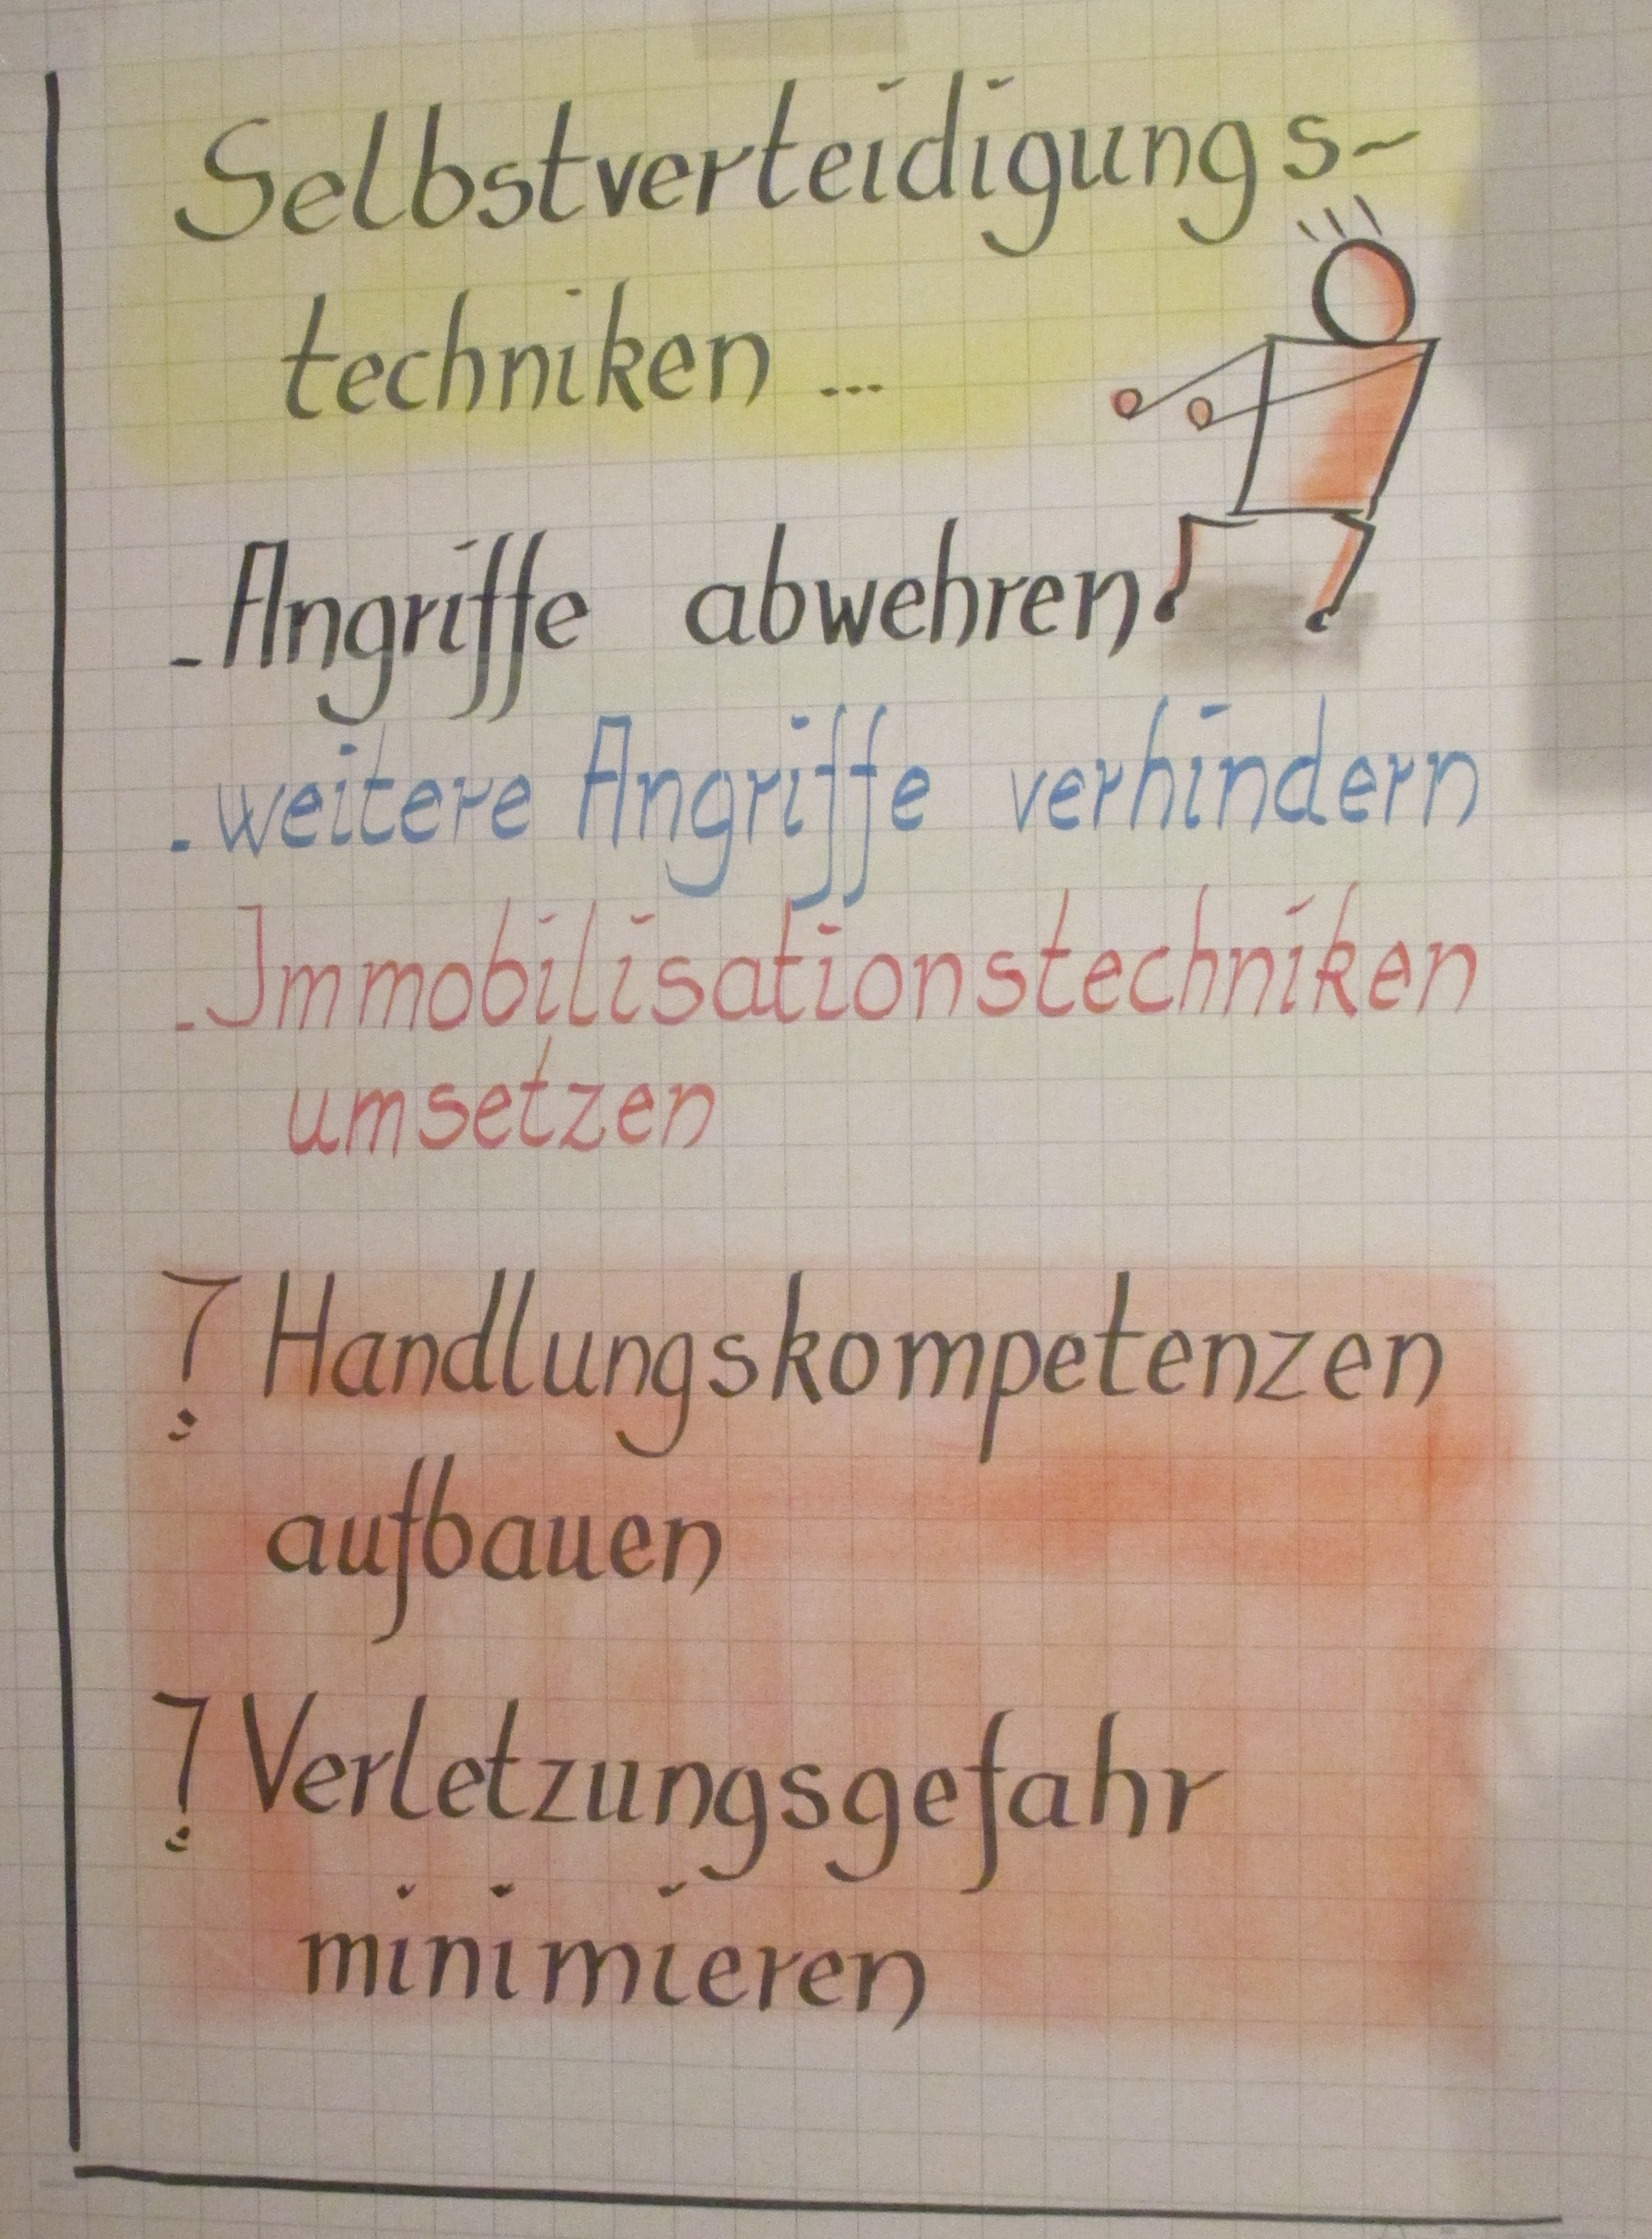 Selbstverteidigungs-
techniken ...
- Angriffe abwehren
- weitere Angriffe verhindern
- Immobilisationstechniken
umsetzen
! Handlungskompetenzen
aufbauen
! Verletzungsgefahr
minimieren